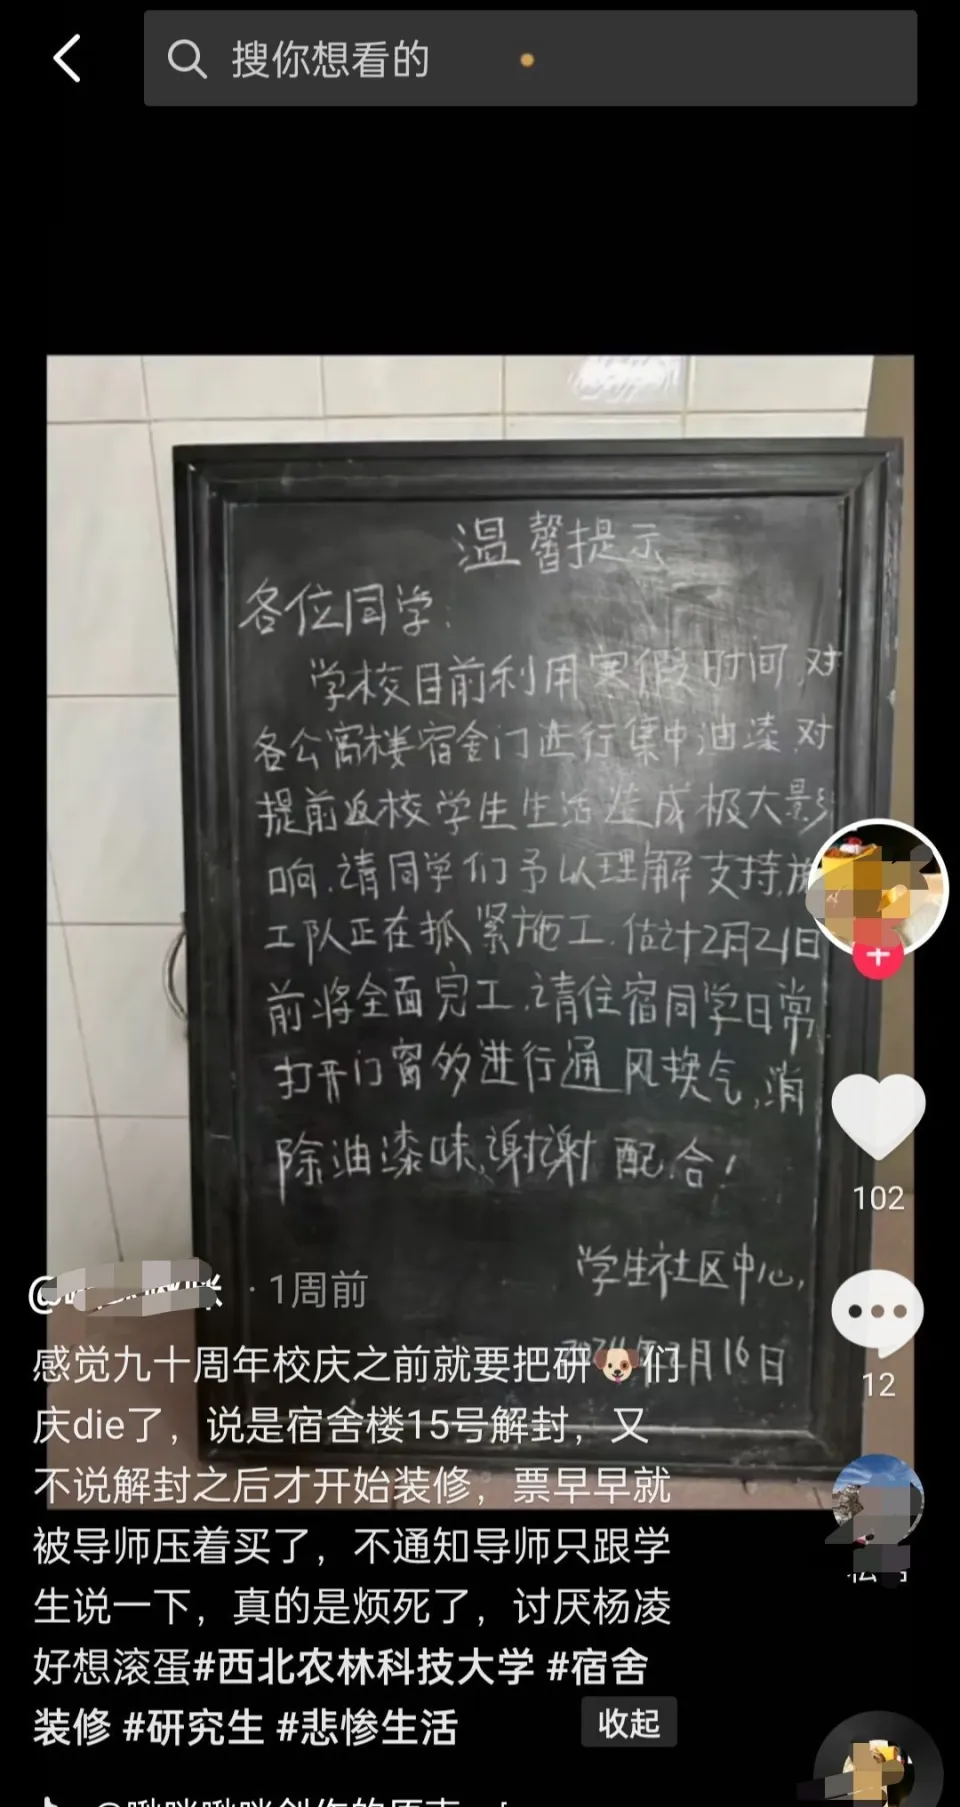 搜你想看的
温馨提示
各位同学:
学校目前利用寒假时间,对
各公寓楼宿舍门进行集中油漆,对
提前返校学生生活造成极大影
响.请同学们予以理解支持,施
工队正在抓紧施工.估计2月21日
前将全面完工.请住宿同学日常
打开门窗多进行通风换气,消
除油漆味,谢谢配合!
学生社区中心,
年2月16日
· 1周前
感觉九十周年校庆之前就要把研🐶们
庆die了，说是宿舍楼15号解封，又
不说解封之后才开始装修，票早早就
被导师压着买了，不通知导师只跟学
生说一下，真的是烦死了，讨厌杨凌
好想滚蛋#西北农林科技大学 #宿舍
装修 #研究生 #悲惨生活
收起
102
12